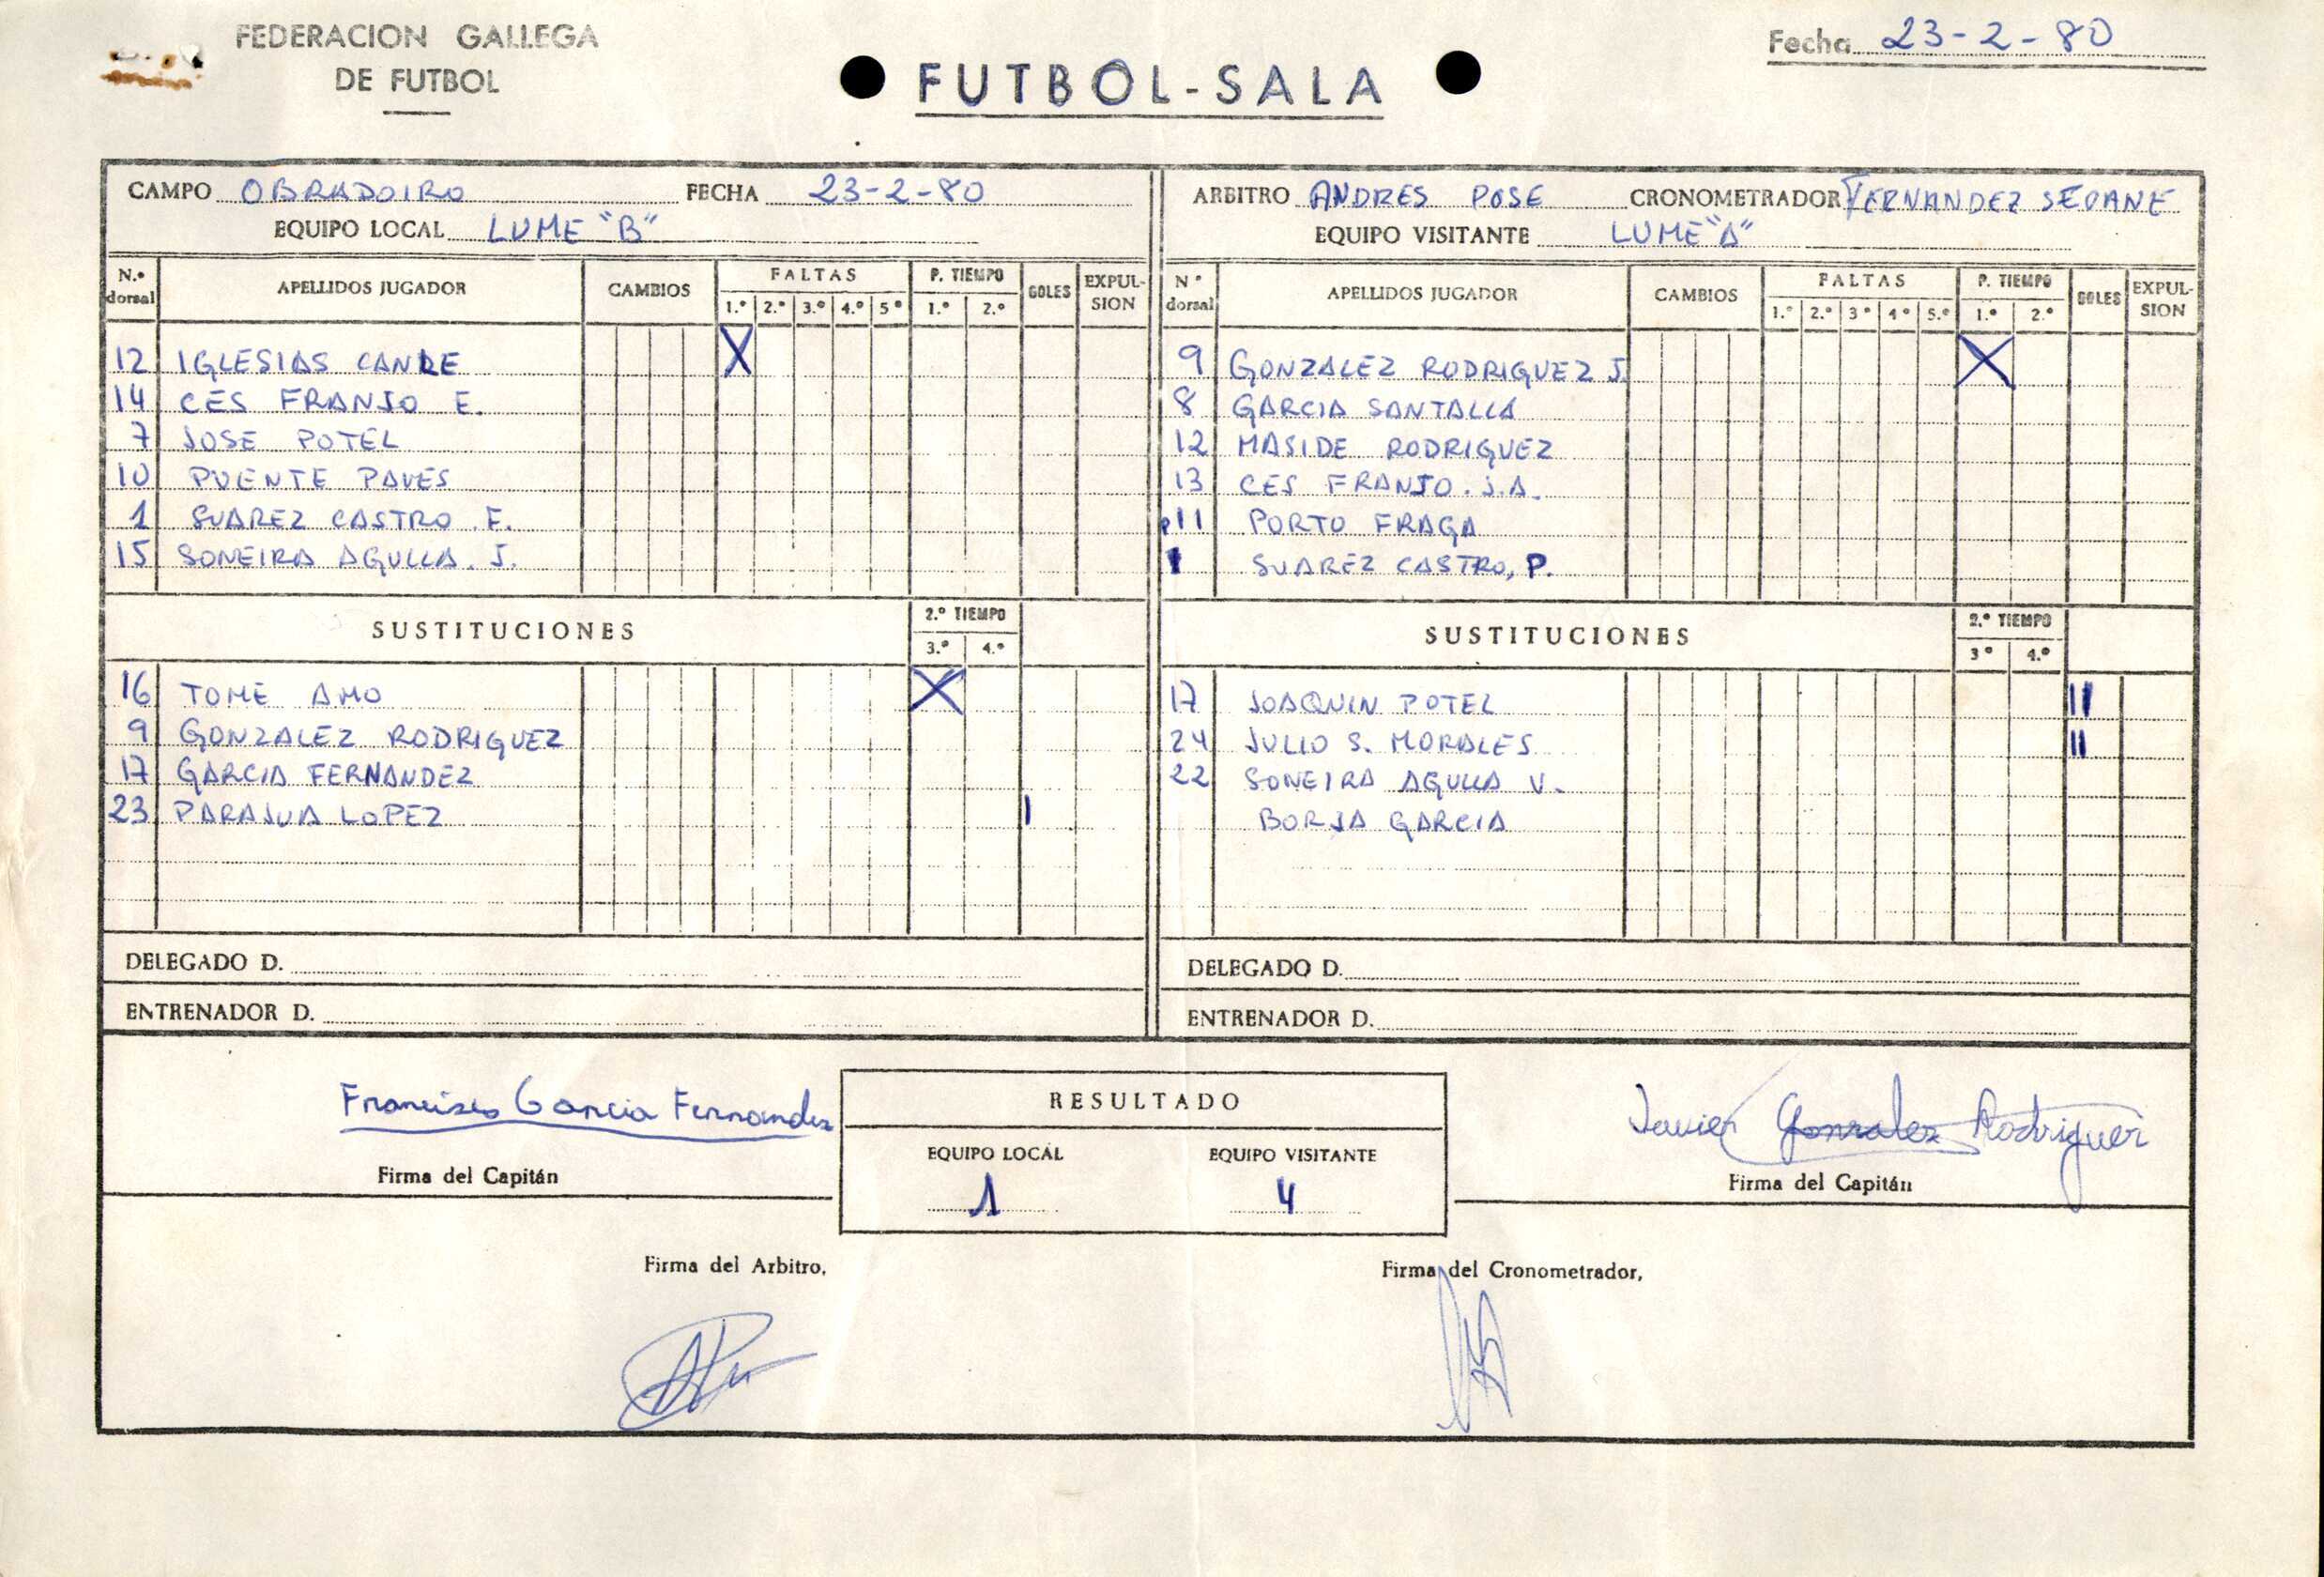 FEDERACION GALLEGA
DE FUTBOL
FUTBOL-SALA
Fecha 23-2-80
CAMPO OBRADOIRO FECHA 23-2-80
EQUIPO LOCAL LUME "B"
N.º dorsal APELLIDOS JUGADOR CAMBIOS FALTAS 1.º 2.º 3.º 4.º 5º P. TIEMPO 1.º 2.º GOLES EXPUL-SION
12 IGLESIAS CANLE X
14 CES FRANJO E.
7 JOSE POTEL
10 PUENTE PAVES
1 SUAREZ CASTRO. F.
15 SONEIRA AGULLA. J.
SUSTITUCIONES 2.º TIEMPO 3.º 4.º
16 TOME AMO X
9 GONZALEZ RODRIGUEZ
17 GARCIA FERNANDEZ
23 PARAJUA LOPEZ I
DELEGADO D.
ENTRENADOR D.
ARBITRO ANDRES POSE CRONOMETRADOR FERNANDEZ SEOANE
EQUIPO VISITANTE LUME "A"
Nº dorsal APELLIDOS JUGADOR CAMBIOS FALTAS 1.º 2.º 3º 4º 5.º P. TIEMPO 1.º 2.º GOLES EXPUL-SION
9 GONZALEZ RODRIGUEZ J. X
8 GARCIA SANTALLA
12 MASIDE RODRIGUEZ
13 CES FRANJO. J.A.
11 PORTO FRAGA
1 SUAREZ CASTRO, P.
SUSTITUCIONES 2.º TIEMPO 3º 4.º
17 JOAQUIN POTEL II
24 JULIO S. MORALES II
22 SONEIRA AGULLA V.
BORJA GARCIA
DELEGADO D.
ENTRENADOR D.
Francisco Garcia Fernandez
Firma del Capitán
RESULTADO
EQUIPO LOCAL EQUIPO VISITANTE
1 4
Javier Gonzalez Rodriguez
Firma del Capitán
Firma del Arbitro,
Firma del Cronometrador,